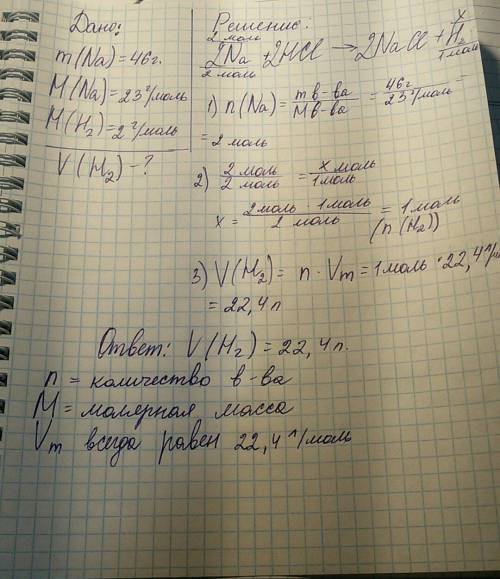 Дано:
m(Na)=46г.
M(Na)=23г/моль
M(H₂)=2г/моль
V(H₂)-?
Решение:
2 моль x
2Na+2HCl→2NaCl+H₂
2 моль 1 моль
1) n(Na)=m в-ва/M в-ва=46г/23г/моль=
=2 моль
2) 2 моль/2 моль=x моль/1 моль
x=2 моль·1 моль/2 моль=1 моль
(n(H₂))
3) V(H₂)=n·Vm=1 моль·22,4л/
=22,4л
Ответ: V(H₂)=22,4л.
n=количество в-ва
M=молярная масса
Vm всегда равен 22,4л/моль